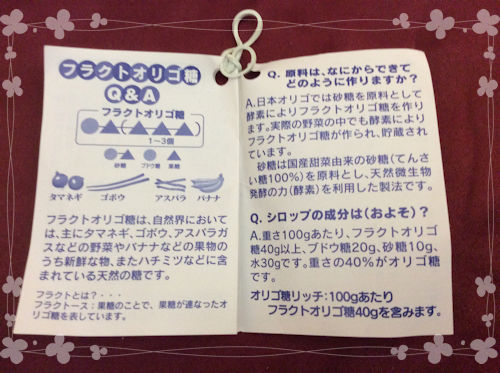 フラクトオリゴ糖
Q&A
フラクトオリゴ糖
1〜3個
砂糖 ブドウ糖 果糖
タマネギ ゴボウ アスパラ バナナ
フラクトオリゴ糖は、自然界において
は、主にタマネギ、ゴボウ、アスパラガ
スなどの野菜やバナナなどの果物の
うち新鮮な物、またハチミツなどに含
まれている天然の糖です。
フラクトとは?・・・
フラクトース:果糖のことで、果糖が連なったオ
リゴ糖を表しています。
Q. 原料は、なにからできて
どのように作りますか?
A.日本オリゴでは砂糖を原料として
酵素によりフラクトオリゴ糖を作り
ます。実際の野菜の中でも酵素により
フラクトオリゴ糖が作られ、貯蔵され
ています。
砂糖は国産甜菜由来の砂糖(てんさ
い糖100%)を原料とし、天然微生物
発酵の力(酵素)を利用した製法です。
Q. シロップの成分は(およそ)?
A.重さ100gあたり、フラクトオリゴ
糖40g以上、ブドウ糖20g、砂糖10g、
水30gです。重さの40%がオリゴ糖
です。
オリゴ糖リッチ:100gあたり
フラクトオリゴ糖40gを含みます。